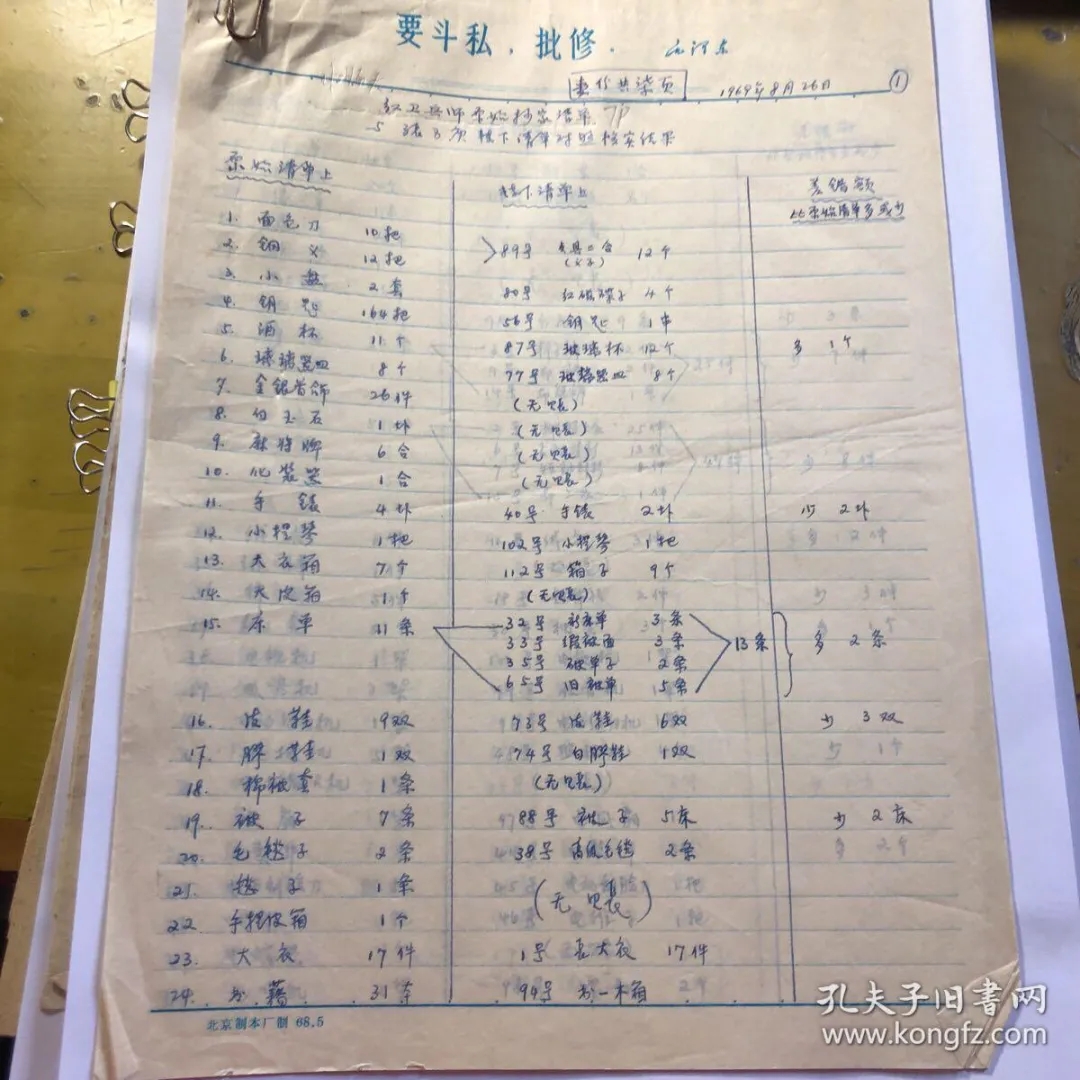 要斗私，批修． 毛泽东
壹份共柒页 1969年8月26日 ①
红卫兵师原始抄家清单 7P
与 下清单对照核实结果
原始清单上 下清单上 差错额
比原始清单多或少
1. 面包刀 10把
2. 钢叉 12把 89号 12个
(叉子)
3. 小盘 2套 80号 碟子 4个
4. 钥匙 164把 56号 钥匙 1串
5. 酒杯 11个 87号 玻璃杯 12个 多 1个
6. 玻璃器皿 8个 77号 玻璃器皿 8个
7. 金银首饰 26件 (无账)
8. 白玉石 1块 (无账)
9. 麻将牌 6合 (无账)
10. 化装器 1合 (无账)
11. 手錶 4块 40号 手錶 2块 少 2块
12. 小提琴 1把 102号 小提琴 1把
13. 大衣箱 7个 112号 箱子 9个
14. 皮箱 1个 (无账)
15. 床单 11条 32号 新床单 3条
33号 缎被面 3条 13条 多 2条
35号 被单子 2条
65号 旧被单 5条
16. 皮鞋 19双 73号 皮鞋 16双 少 3双
17. 胶鞋 1双 74号 白胶鞋 1双
18. 棉被套 1条 (无账)
19. 被子 7条 88号 被子 5床 少 2床
20. 毛毯子 2条 38号 高级毛毯 2条
21. 毯子 1条
(无账)
22. 手提皮箱 1个
23. 大衣 17件 1号 长大衣 17件
24. 书籍 31本 94号 书一木箱
北京制本厂制 68.5
孔夫子旧书网
www.kongfz.com